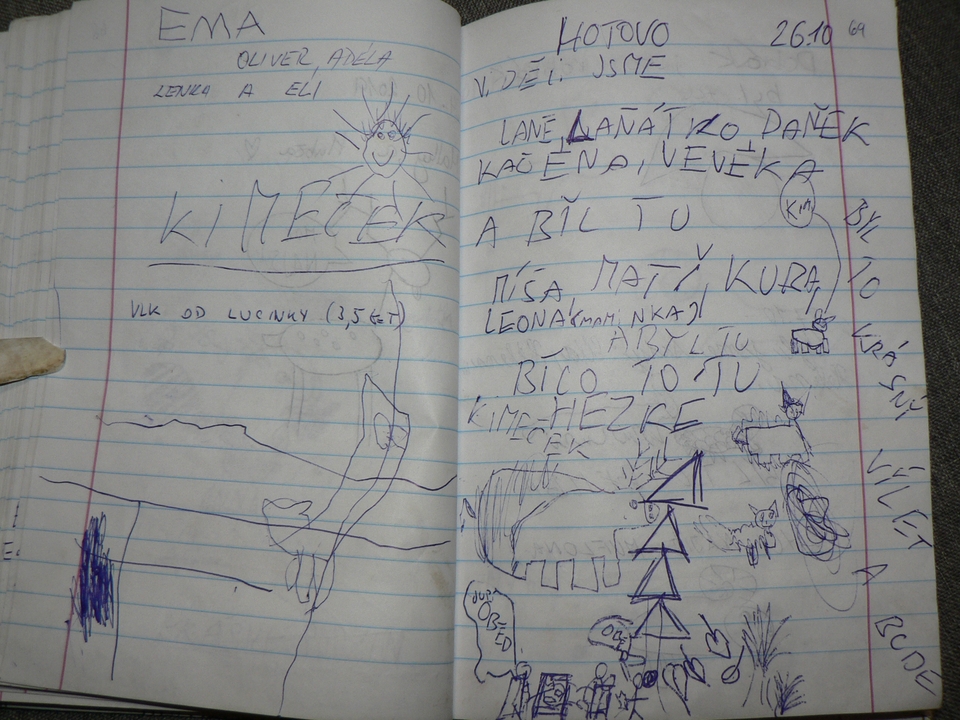 EMA
OLIVER, ADÉLA
LENKA A ELI
KIMEČEK
VLK OD LUCINKY (3,5 LET)
HOTOVO 26.10 69
VIDĚLI JSME
LANĚ, LAŇÁTKO DANĚK
KAČENA, VEVĚKA
KIM
A BÏL TU
MÍŠA, MATĚJ, KUBA,
LEONA (MAMINKA)
A BYL TU
BÍLO TO TU
KIMEČEK
HEZKÉ
OBĚD
OBĚD
BYL
TO
KRÁSNÝ
VÝLET
A
BUDE